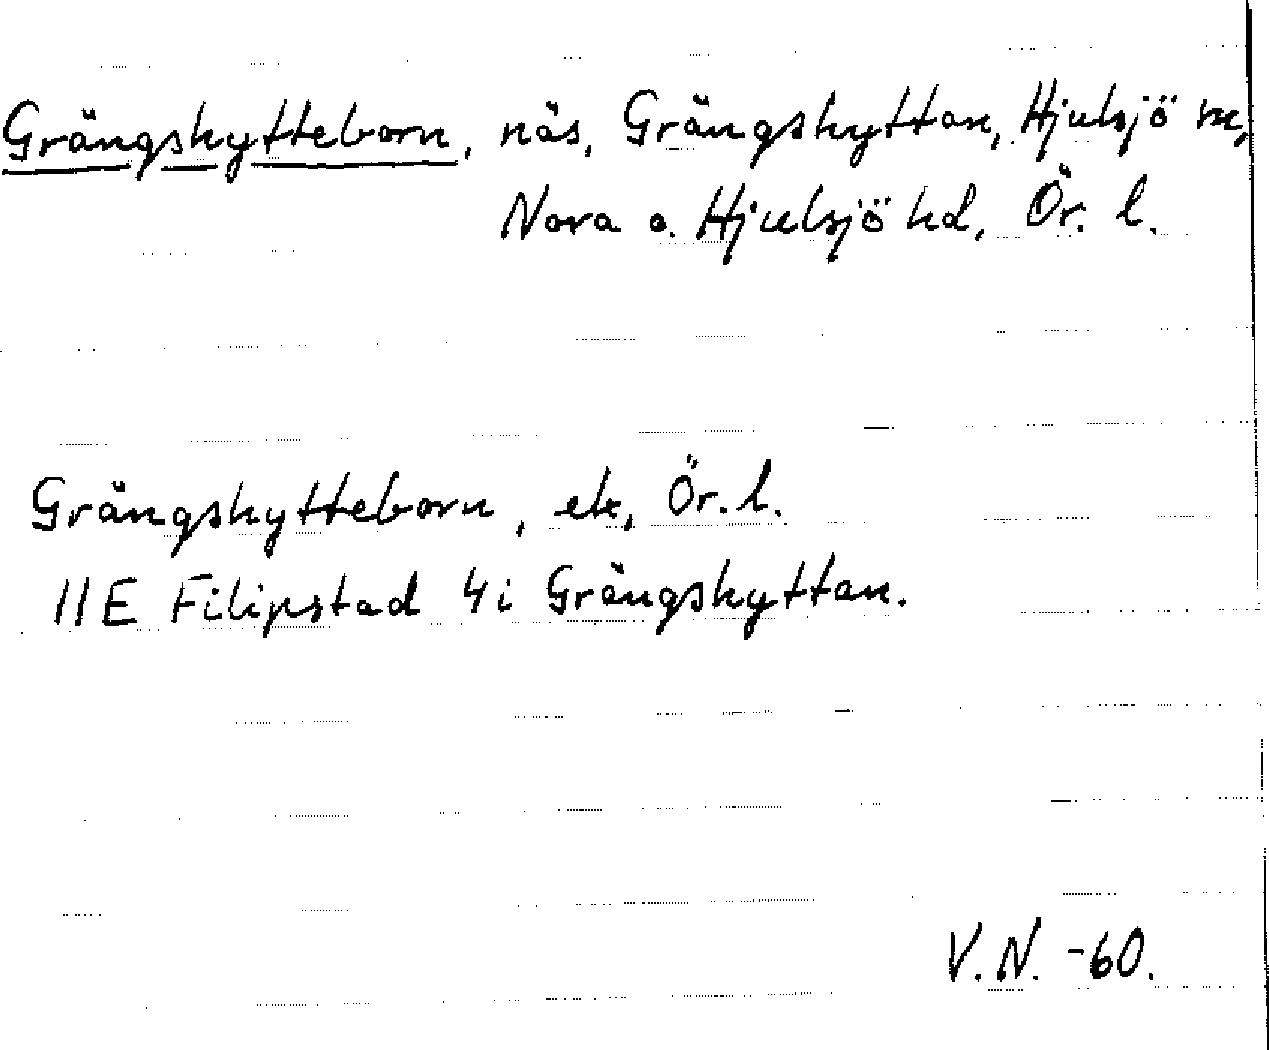 Grängshytteborn, näs, Grängshyttan, Hjulsjö sn,
Nora o. Hjulsjö hd, Ör. l.
Grängshytteborn, ek, Ör. l.
11E Filipstad 4i Grängshyttan.
V.N. -60.